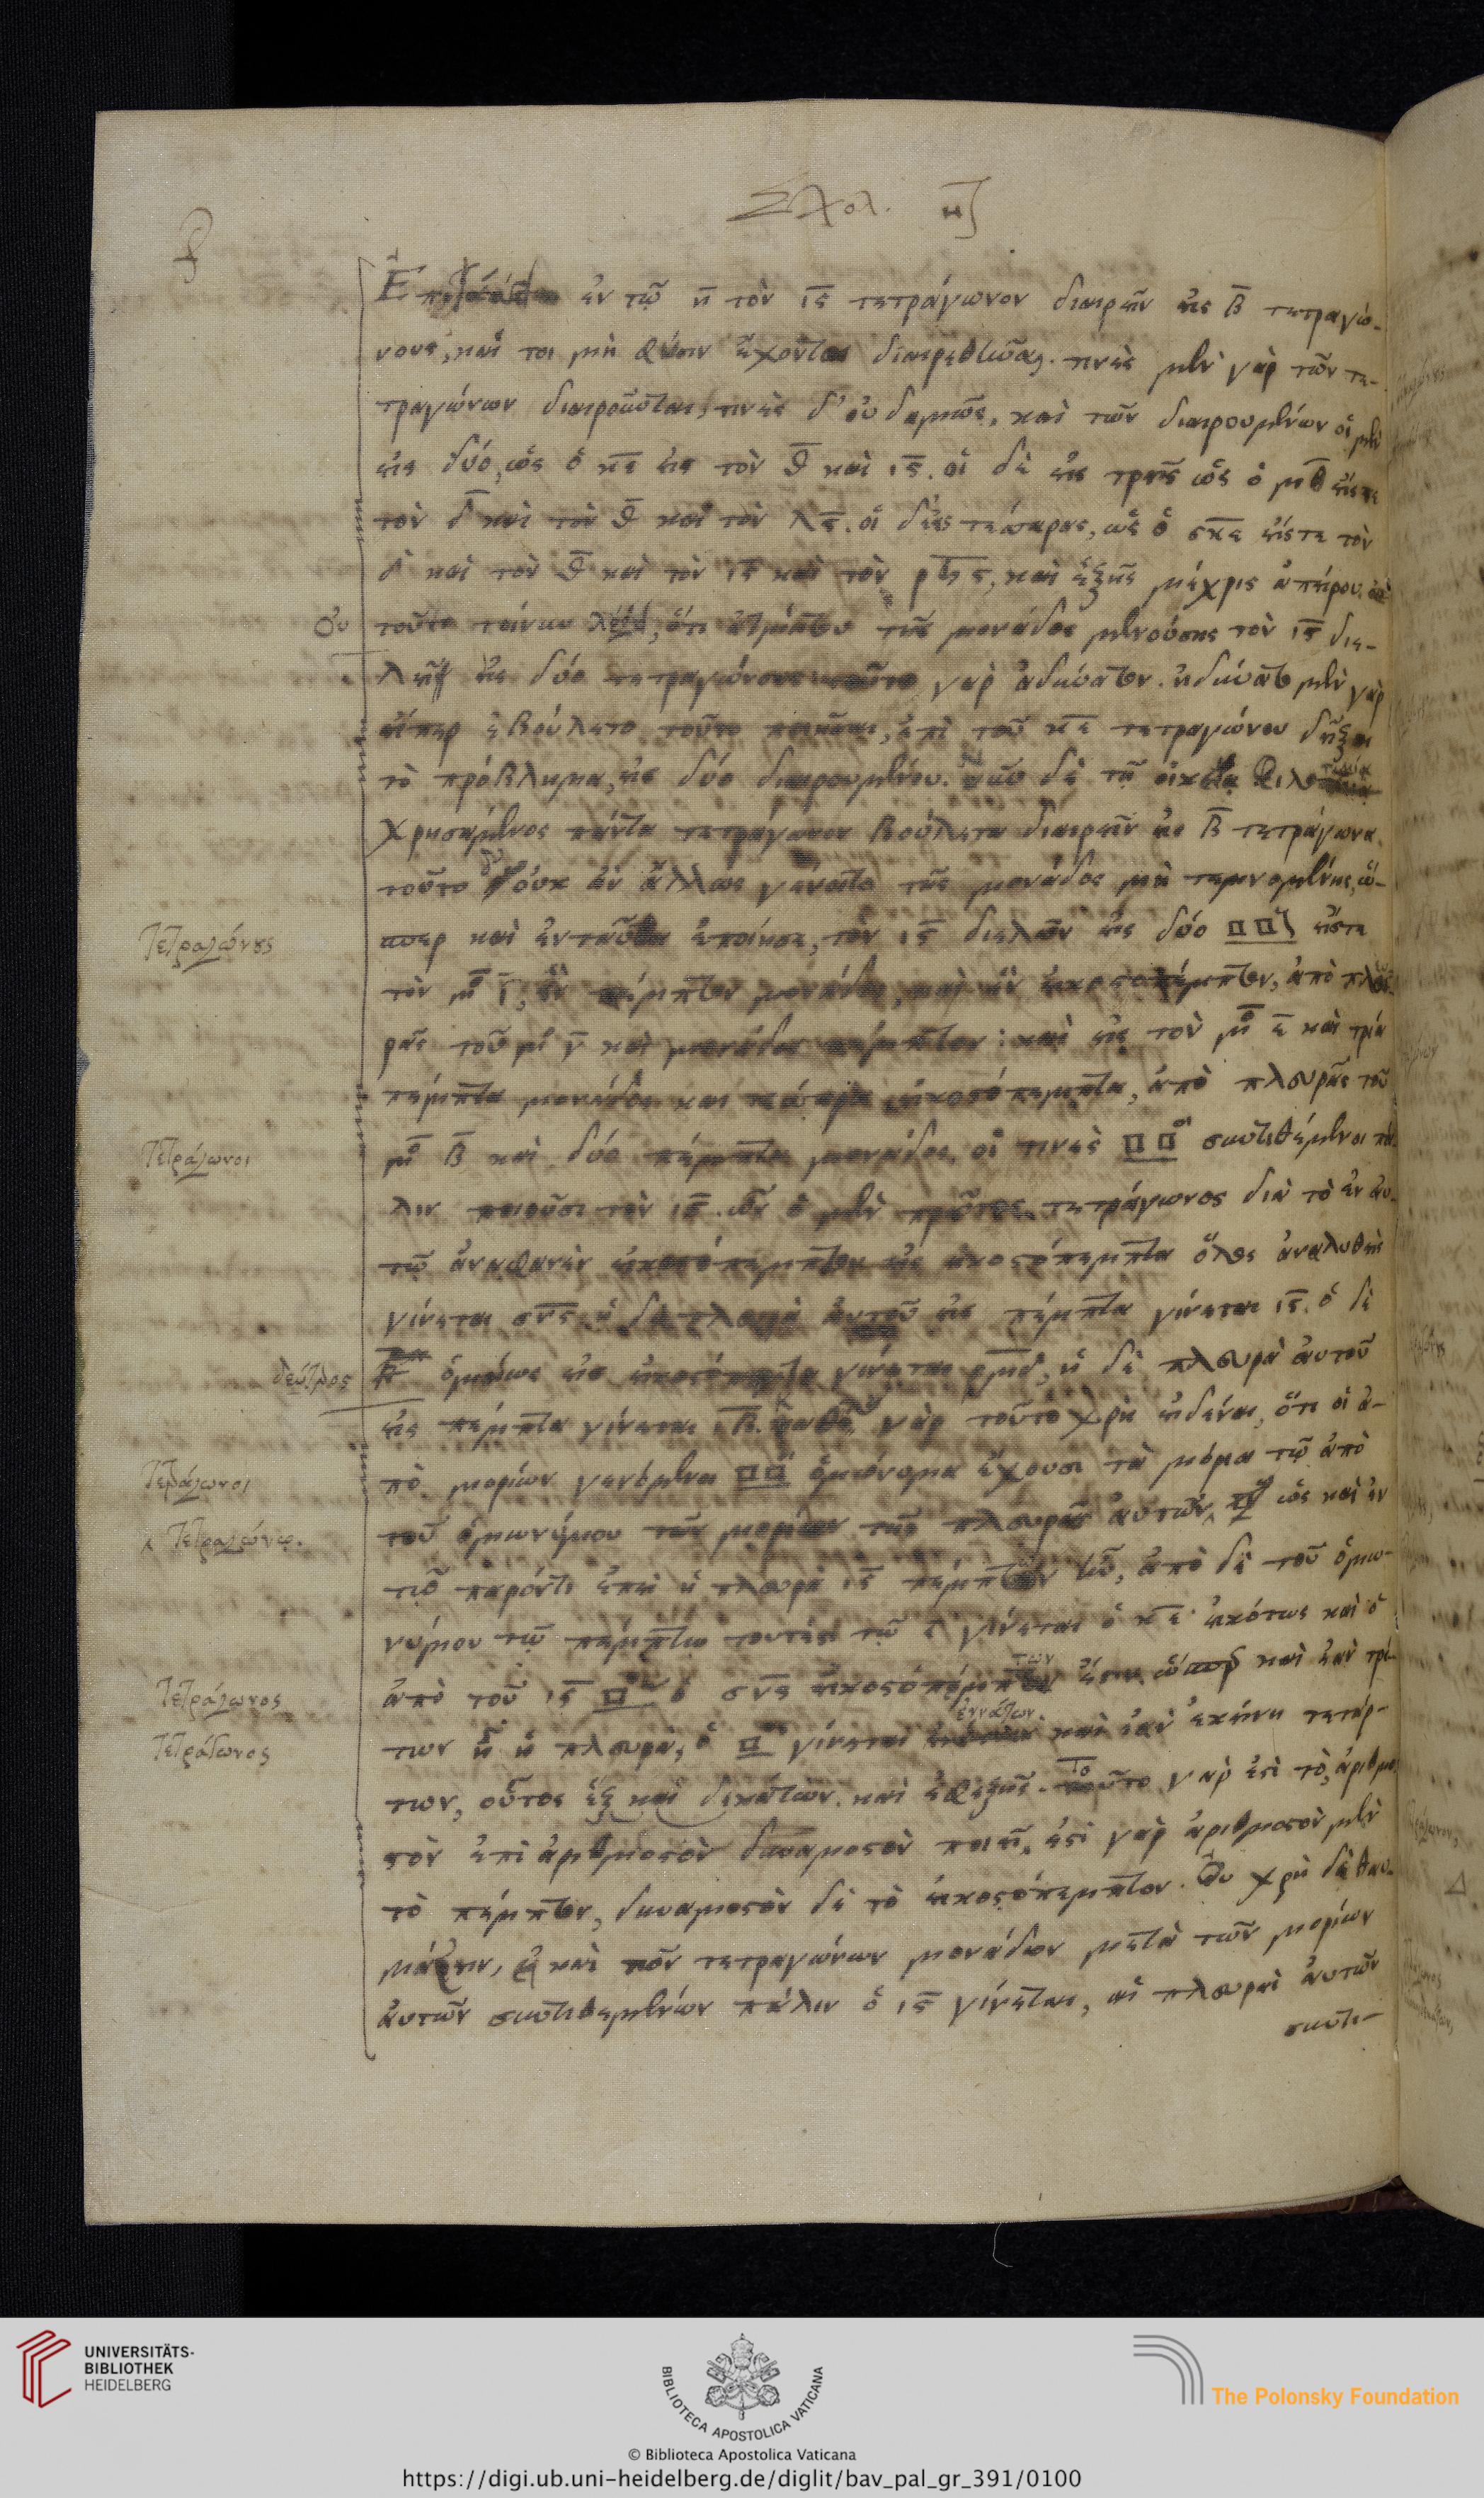 Σχολ. η
ἐν τῷ η τὸν ιϛ τετράγωνον διαιρεῖν εἰς β τετραγώ-
νους, καί τοι μὴ φύσιν ἔχοντα διαιρεθῆναι. τινὲς μὲν γὰρ τῶν τε-
τραγώνων διαιροῦνται, τινὲς δ' οὐδαμῶς, καὶ τῶν διαιρουμένων οἱ μὲν
εἰς δύο, ὡς ὁ κε εἰς τὸν θ καὶ ιϛ. οἱ δὲ εἰς τρεῖς ὡς ὁ μθ εἴς τε
τὸν δ καὶ τὸν θ καὶ τὸν λϛ. οἱ δ' εἰς τέσσαρας, ὡς ὁ σκε εἴς τε τὸν
δ καὶ τὸν θ καὶ τὸν ιϛ καὶ τὸν ρϟϛ, καὶ ἑξῆς μέχρις ἀπείρου.
Οὐ
τοῦτο τοίνυν, ὅτι ἀτμήτου τῆς μονάδος μενούσης τὸν ιϛ διε-
λεῖν εἰς δύο τετραγώνους γὰρ ἀδύνατον. ἠδύνατο μὲν γὰρ
εἴπερ ἐβούλετο τοῦτο ποιῆσαι, ἐπὶ τοῦ κε τετραγώνου δεῖξαι
τὸ πρόβλημα, εἰς δύο διαιρουμένου. δὲ τῇ οἰκείᾳ
χρησάμενος πάντα τετράγωνον βούλεται διαιρεῖν εἰς β τετράγωνα.
τοῦτο δ' οὐκ ἂν ἄλλως γένοιτο τῆς μονάδος μὴ τεμνομένης, ὥ-
σπερ καὶ ἐνταῦθα ἐποίησε, τὸν ιϛ διελὼν εἰς δύο □□ εἴς τε
Τετραγώνους
τὸν μο ι, ἓν πέμπτον μονάδος, καὶ ἓν εἰκοστόπεμπτον, ἀπὸ πλευ-
ρᾶς τοῦ μο γ καὶ μονάδος πέμπτον: καὶ εἰς τὸν μο ε καὶ τρία
πέμπτα μονάδος καὶ τέσσαρα εἰκοστόπεμπτα, ἀπὸ πλευρᾶς τοῦ
μο β καὶ δύο πέμπτα μονάδος. οἵ τινες □□οι συντιθέμενοι πά-
Τετράγωνοι
λιν ποιοῦσι τὸν ιϛ. ὧν ὁ μὲν πρῶτος τετράγωνος διὰ τὸ ἐν αὐ-
τῷ ἀναφανὲν εἰκοστόπεμπτον εἰς εἰκοστόπεμπτα ὅλος ἀναλυθεὶς
γίνεται σνϛ. ἡ δὲ πλευρὰ αὐτοῦ εἰς πέμπτα γίνεται ιϛ. ὁ δὲ
δεύτερος
ὁμοίως εἰς εἰκοστόπεμπτα γίνεται ρμδ, ἡ δὲ πλευρὰ αὐτοῦ
εἰς πέμπτα γίνεται ιβ. γὰρ τοῦτο χρὴ εἰδέναι, ὅτι οἱ ἀ-
πὸ μορίων γενόμενοι □□οι ὁμώνυμα ἔχουσι τὰ μόρια τῷ ἀπὸ
Τετράγωνοι
τοῦ ὁμωνύμου τῶν μορίων τῆς πλευρᾶς αὐτῶν, ὡς καὶ ἐν
Τετραγώνῳ.
τῷ παρόντι ἐπεὶ ἡ πλευρὰ ιϛ πέμπτων ἦν, ἀπὸ δὲ τοῦ ὁμω-
νύμου τῷ πέμπτῳ τουτέστι τῷ ε γίνεται ὁ κε εἰκότως καὶ ὁ
ἀπὸ τοῦ ιϛ □ος ὁ σνϛ εἰκοστοπέμπτων ἐστὶν ὥσπερ καὶ ἐὰν τρί-
Τετράγωνος
των ᾖ ἡ πλευρὰ, ὁ □ος γίνεται ἐννάτων καὶ ἐὰν ἐκείνη τετάρ-
Τετράγωνος
των, οὗτος ἓξ καὶ δεκάτων. καὶ ἐφεξῆς. Τοῦτο γάρ ἐστι τὸ, ἀριθμο-
στὸν ἐπὶ ἀριθμοστὸν δυναμοστὸν ποιεῖ. ἐστὶ γὰρ ἀριθμοστὸν μὲν
τὸ πέμπτον, δυναμοστὸν δὲ τὸ εἰκοστόπεμπτον. Οὐ χρὴ δὲ θαυ-
μάζειν, εἰ καὶ τῶν τετραγώνων μονάδων μετὰ τῶν μορίων
αὐτῶν συντιθεμένων πάλιν ὁ ιϛ γίνεται, αἱ πλευραὶ αὐτῶν
συντι-
UNIVERSITÄTS-
BIBLIOTHEK
HEIDELBERG
BIBLIOTECA APOSTOLICA VATICANA
The Polonsky Foundation
© Biblioteca Apostolica Vaticana
https://digi.ub.uni-heidelberg.de/diglit/bav_pal_gr_391/0100